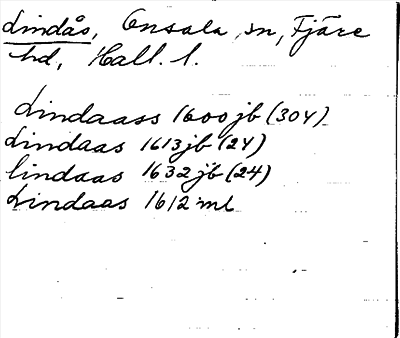 Lindås, Onsala sn, Fjäre
hd, Hall. l.
Lindaass 1600 jb (304)
Lindaas 1613 jb (24)
lindaas 1632 jb (24)
Lindaas 1612 ml